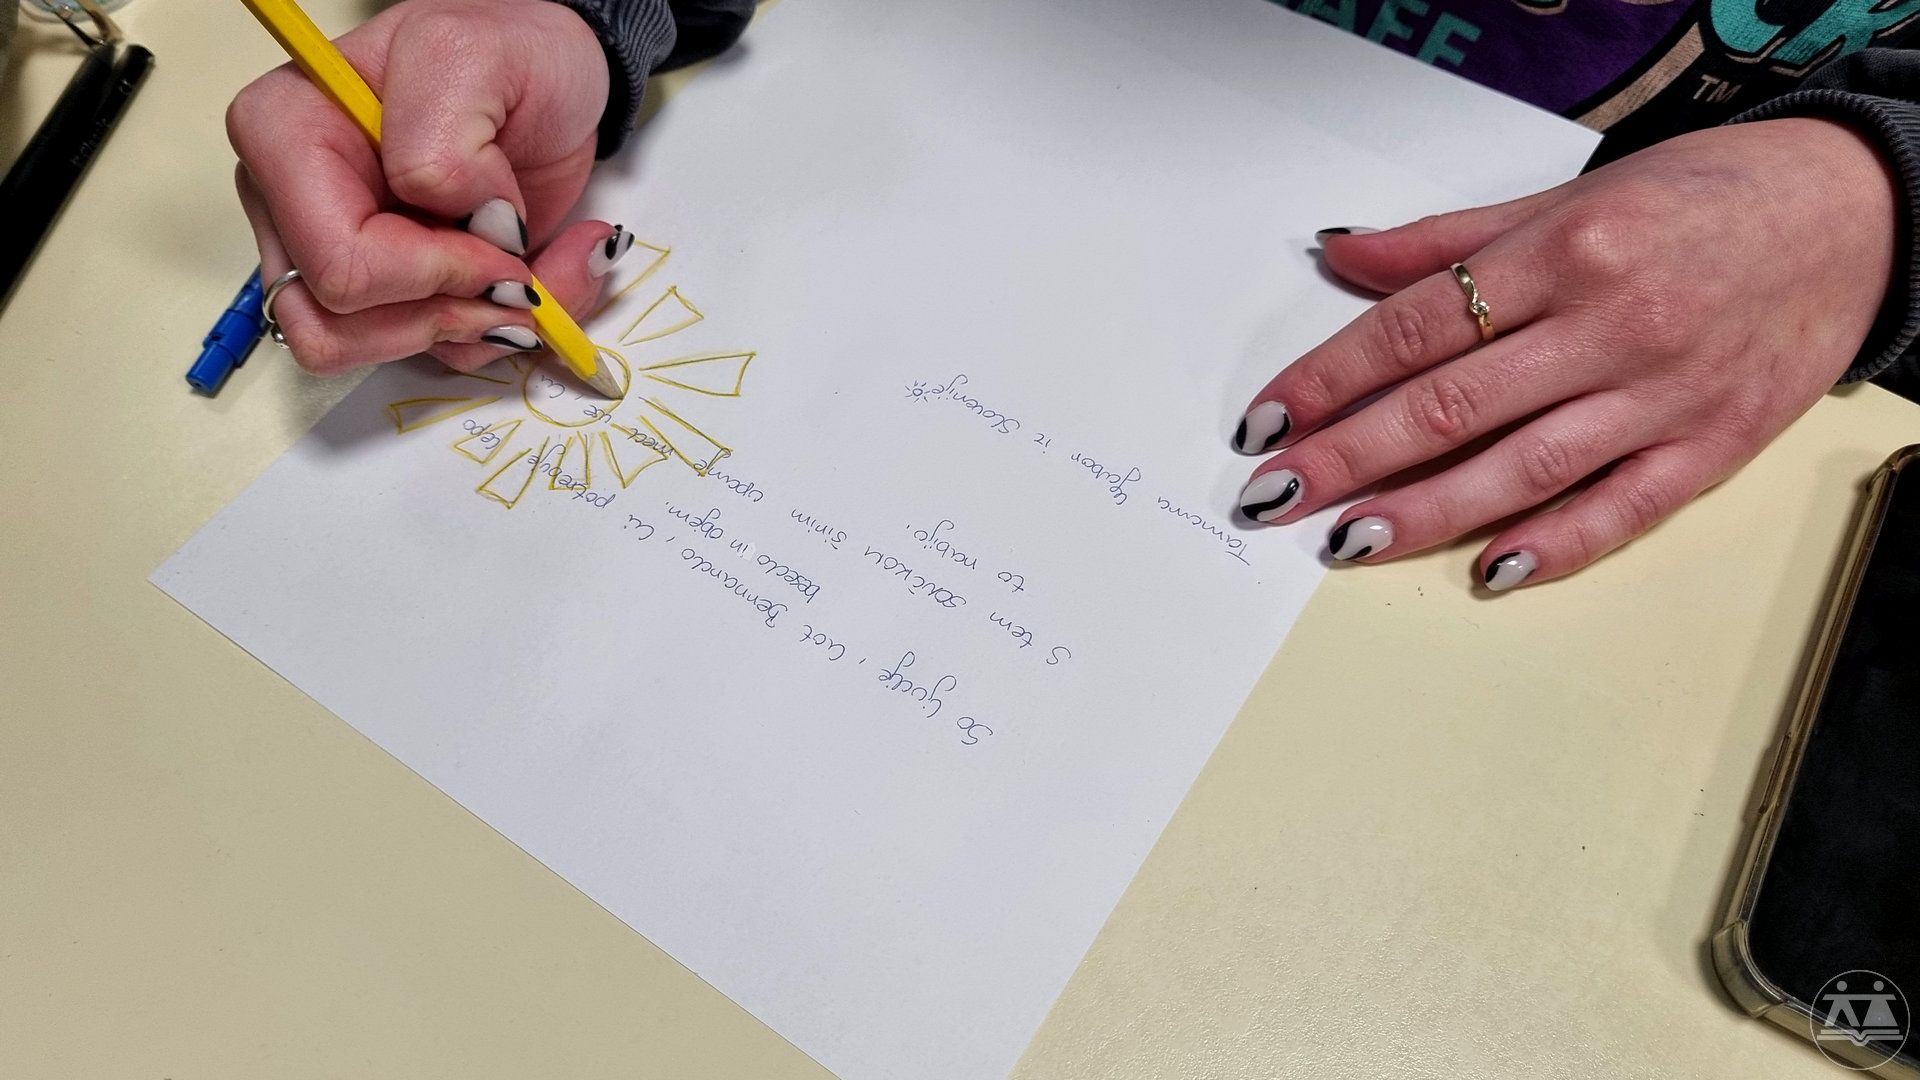 So ljudje, kot , ki potrebuje lepo
besedo in objem.
S tem sončkom širim upanje med vse, ki
to rabijo.
Tamara iz Slovenije
TM